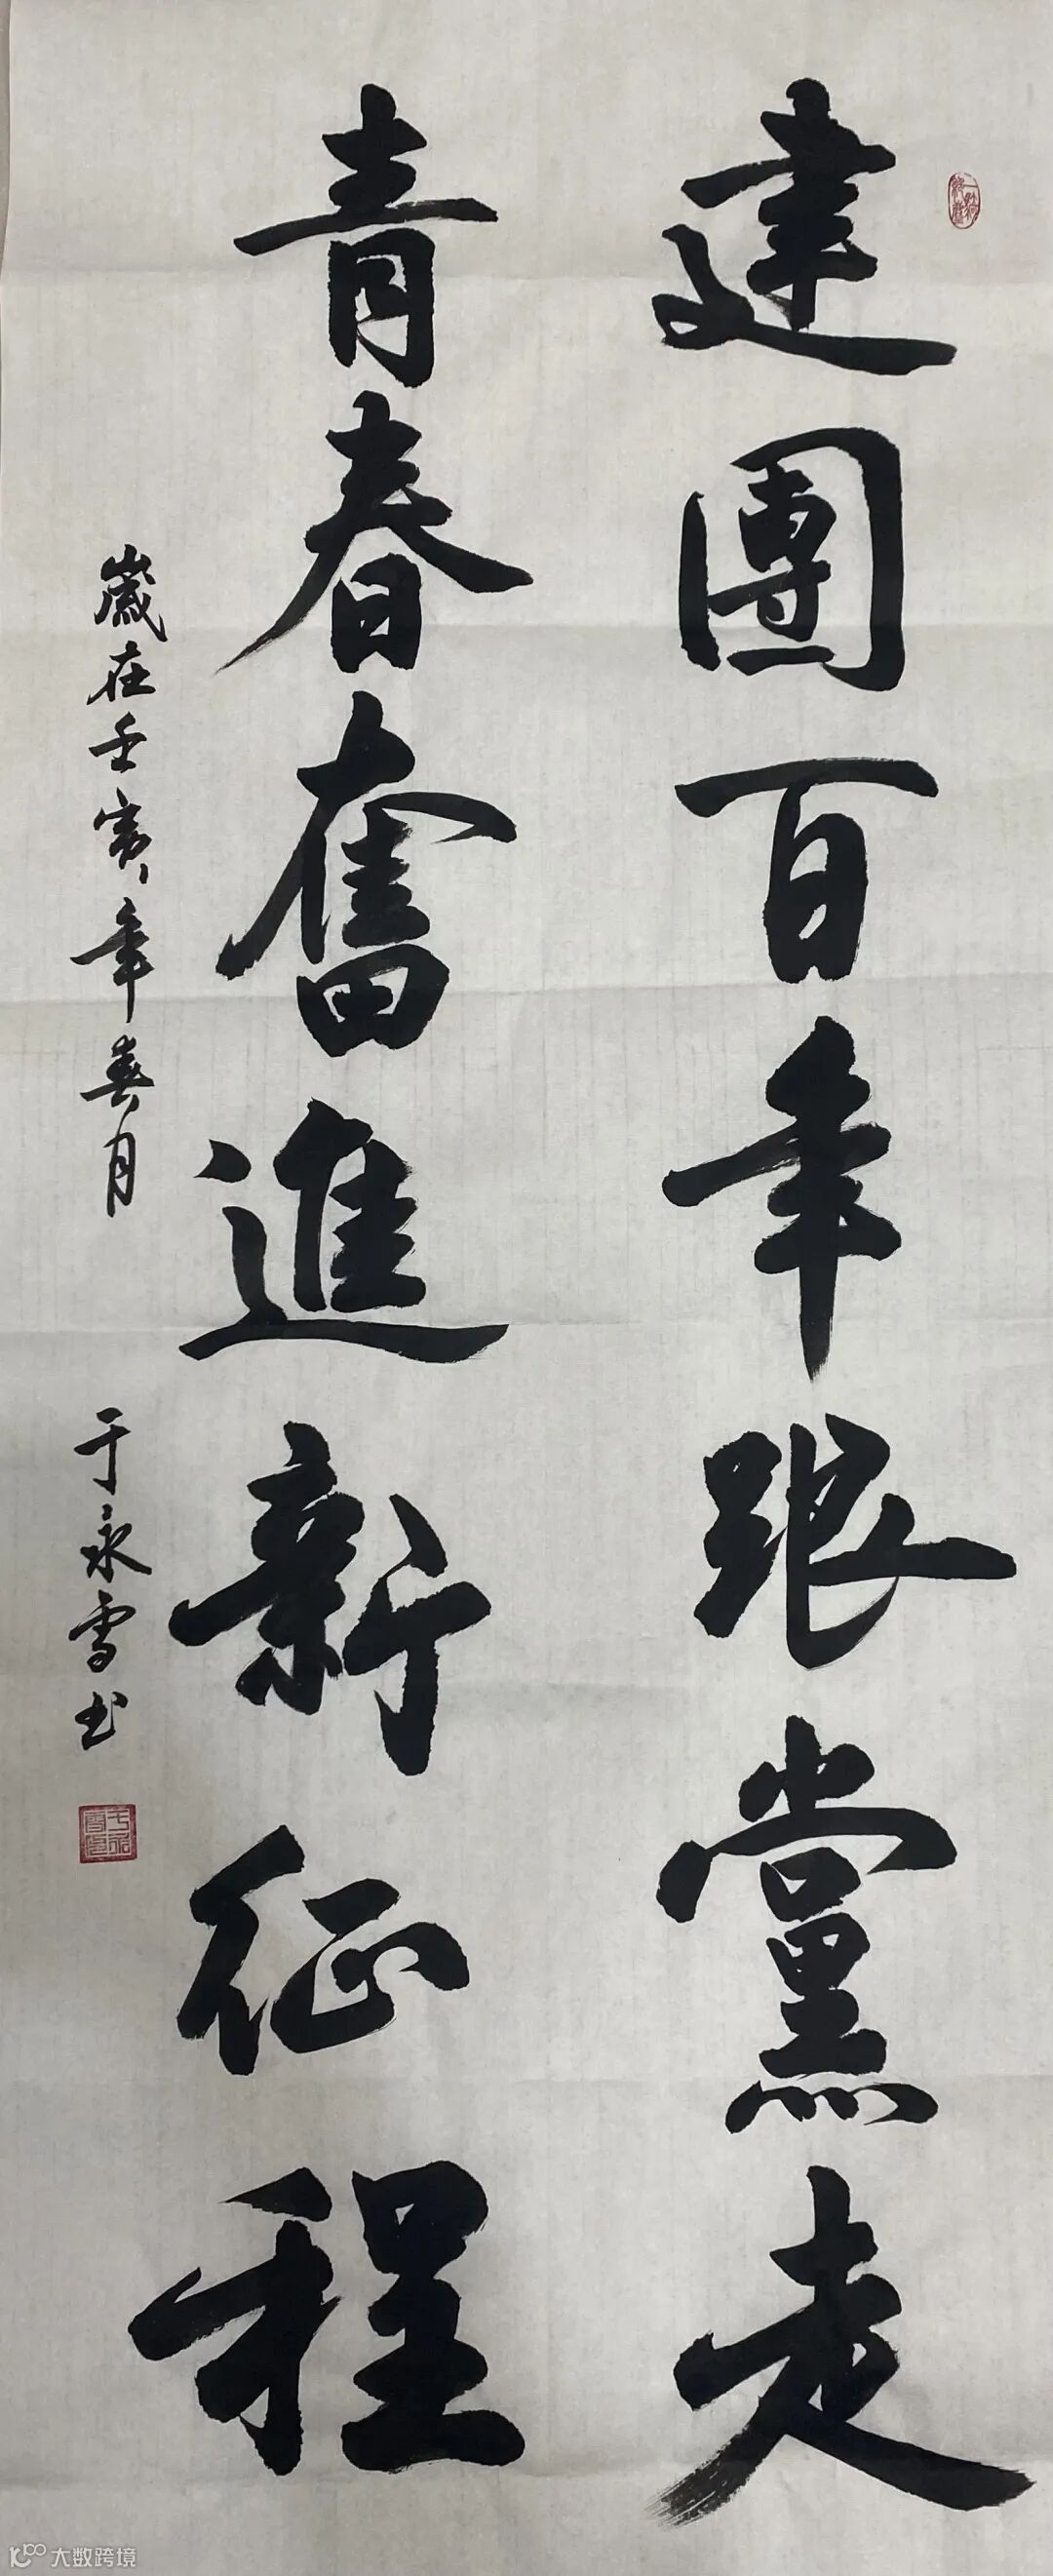 建團百年跟黨走
青春奮進新征程
歲在壬寅年春月
于永雪书
大数跨境